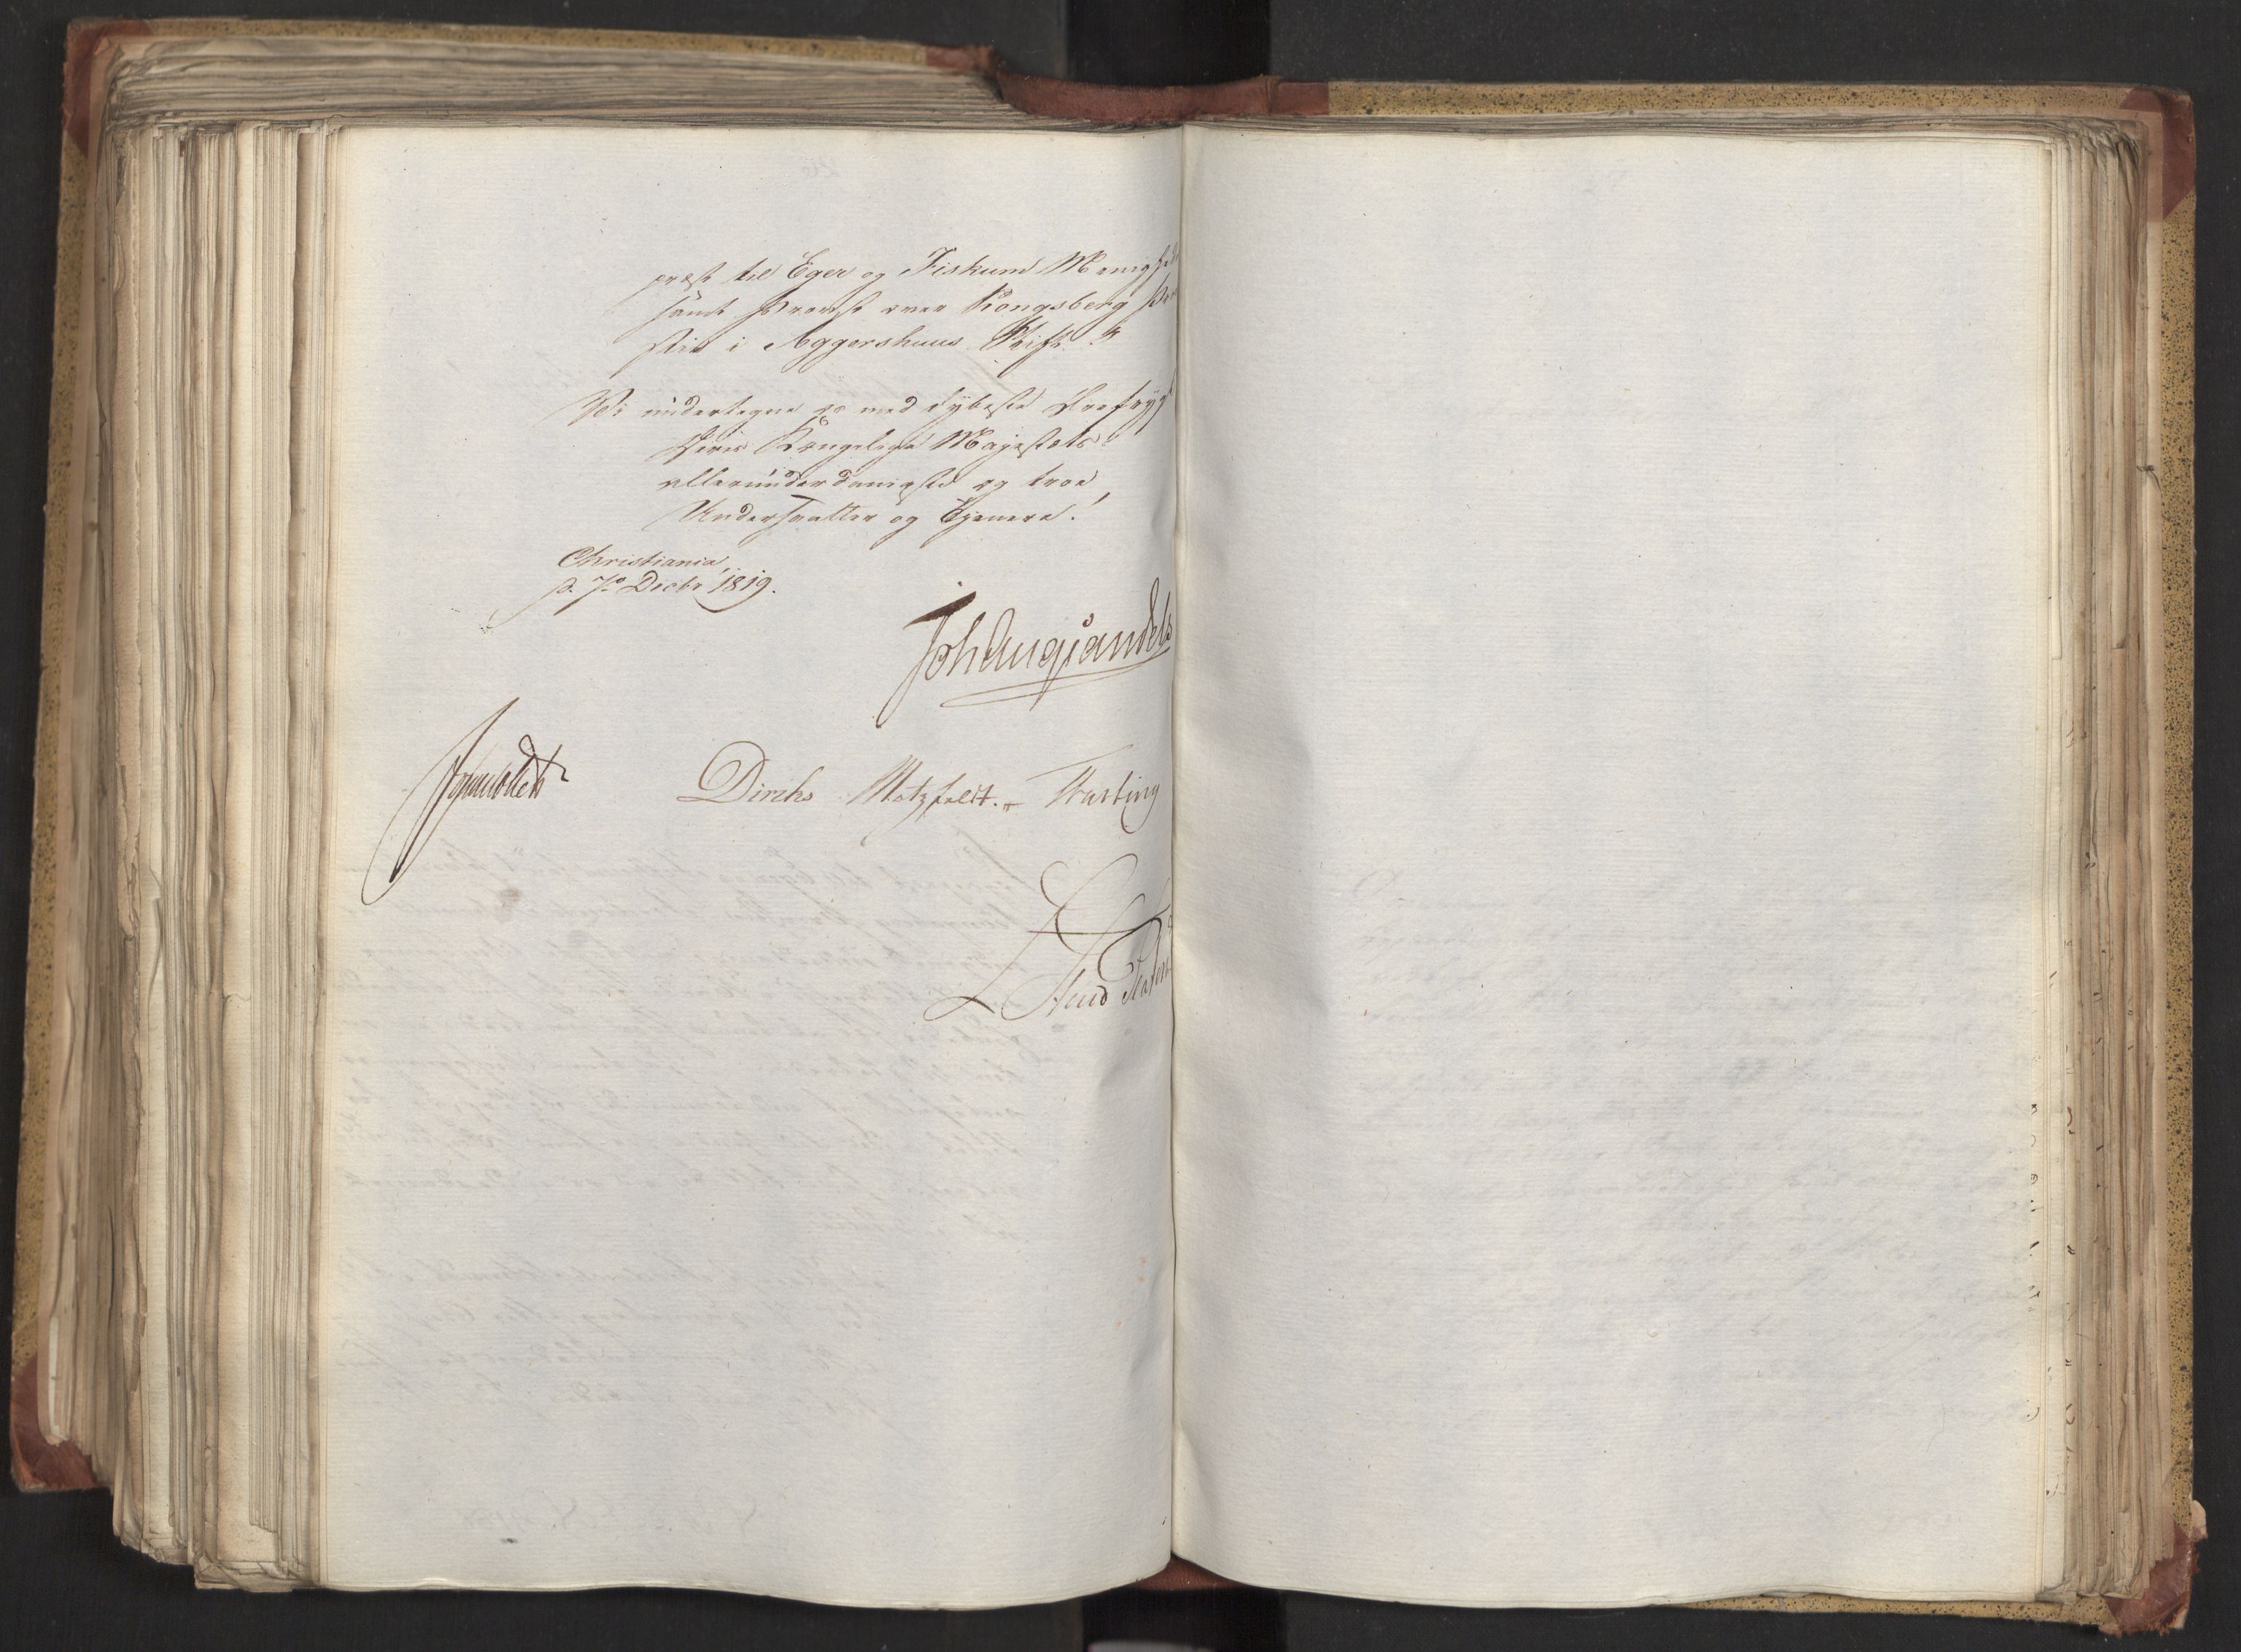 præst til Eger og Fiskum Menighed
samt Provst over Kongsberg Prov
stie i Aggershuus Stift.
Vi undertegne os med dybeste Ærefrygt
Deres Kongelige Majestæts
allerunderdanigste og troe
Undersaatter og Tjenere!
Christiania,
d. 7de Decbr 1819.
Joh Aug Sandels
Sommerhielm
Diriks Motzfeldt. Fasting
L